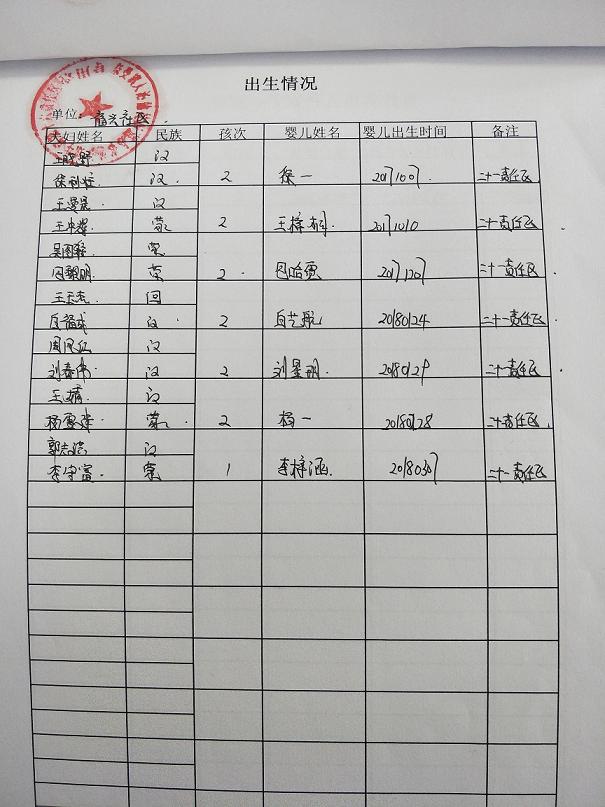 出生情况
单位: 嘉兴社区
夫妇姓名 民族 孩次 婴儿姓名 婴儿出生时间 备注
王晓野 汉
徐利 汉 2 徐一 20171007 二十一责任区
王曼 汉
王 蒙 2 王梓桐 20171010 二十一责任区
吴图 蒙
图黎明 蒙 2 图哈 20171207 二十一责任区
王天 回
汉 2 20180124 二十一责任区
周凤 汉
刘春伟 汉 2 刘星 2018012 二十一责任区
王婧 汉
杨 蒙 2 杨一 20180128 二十一责任区
郭志 汉
李守富 蒙 1 李梓涵 20180307 二十一责任区